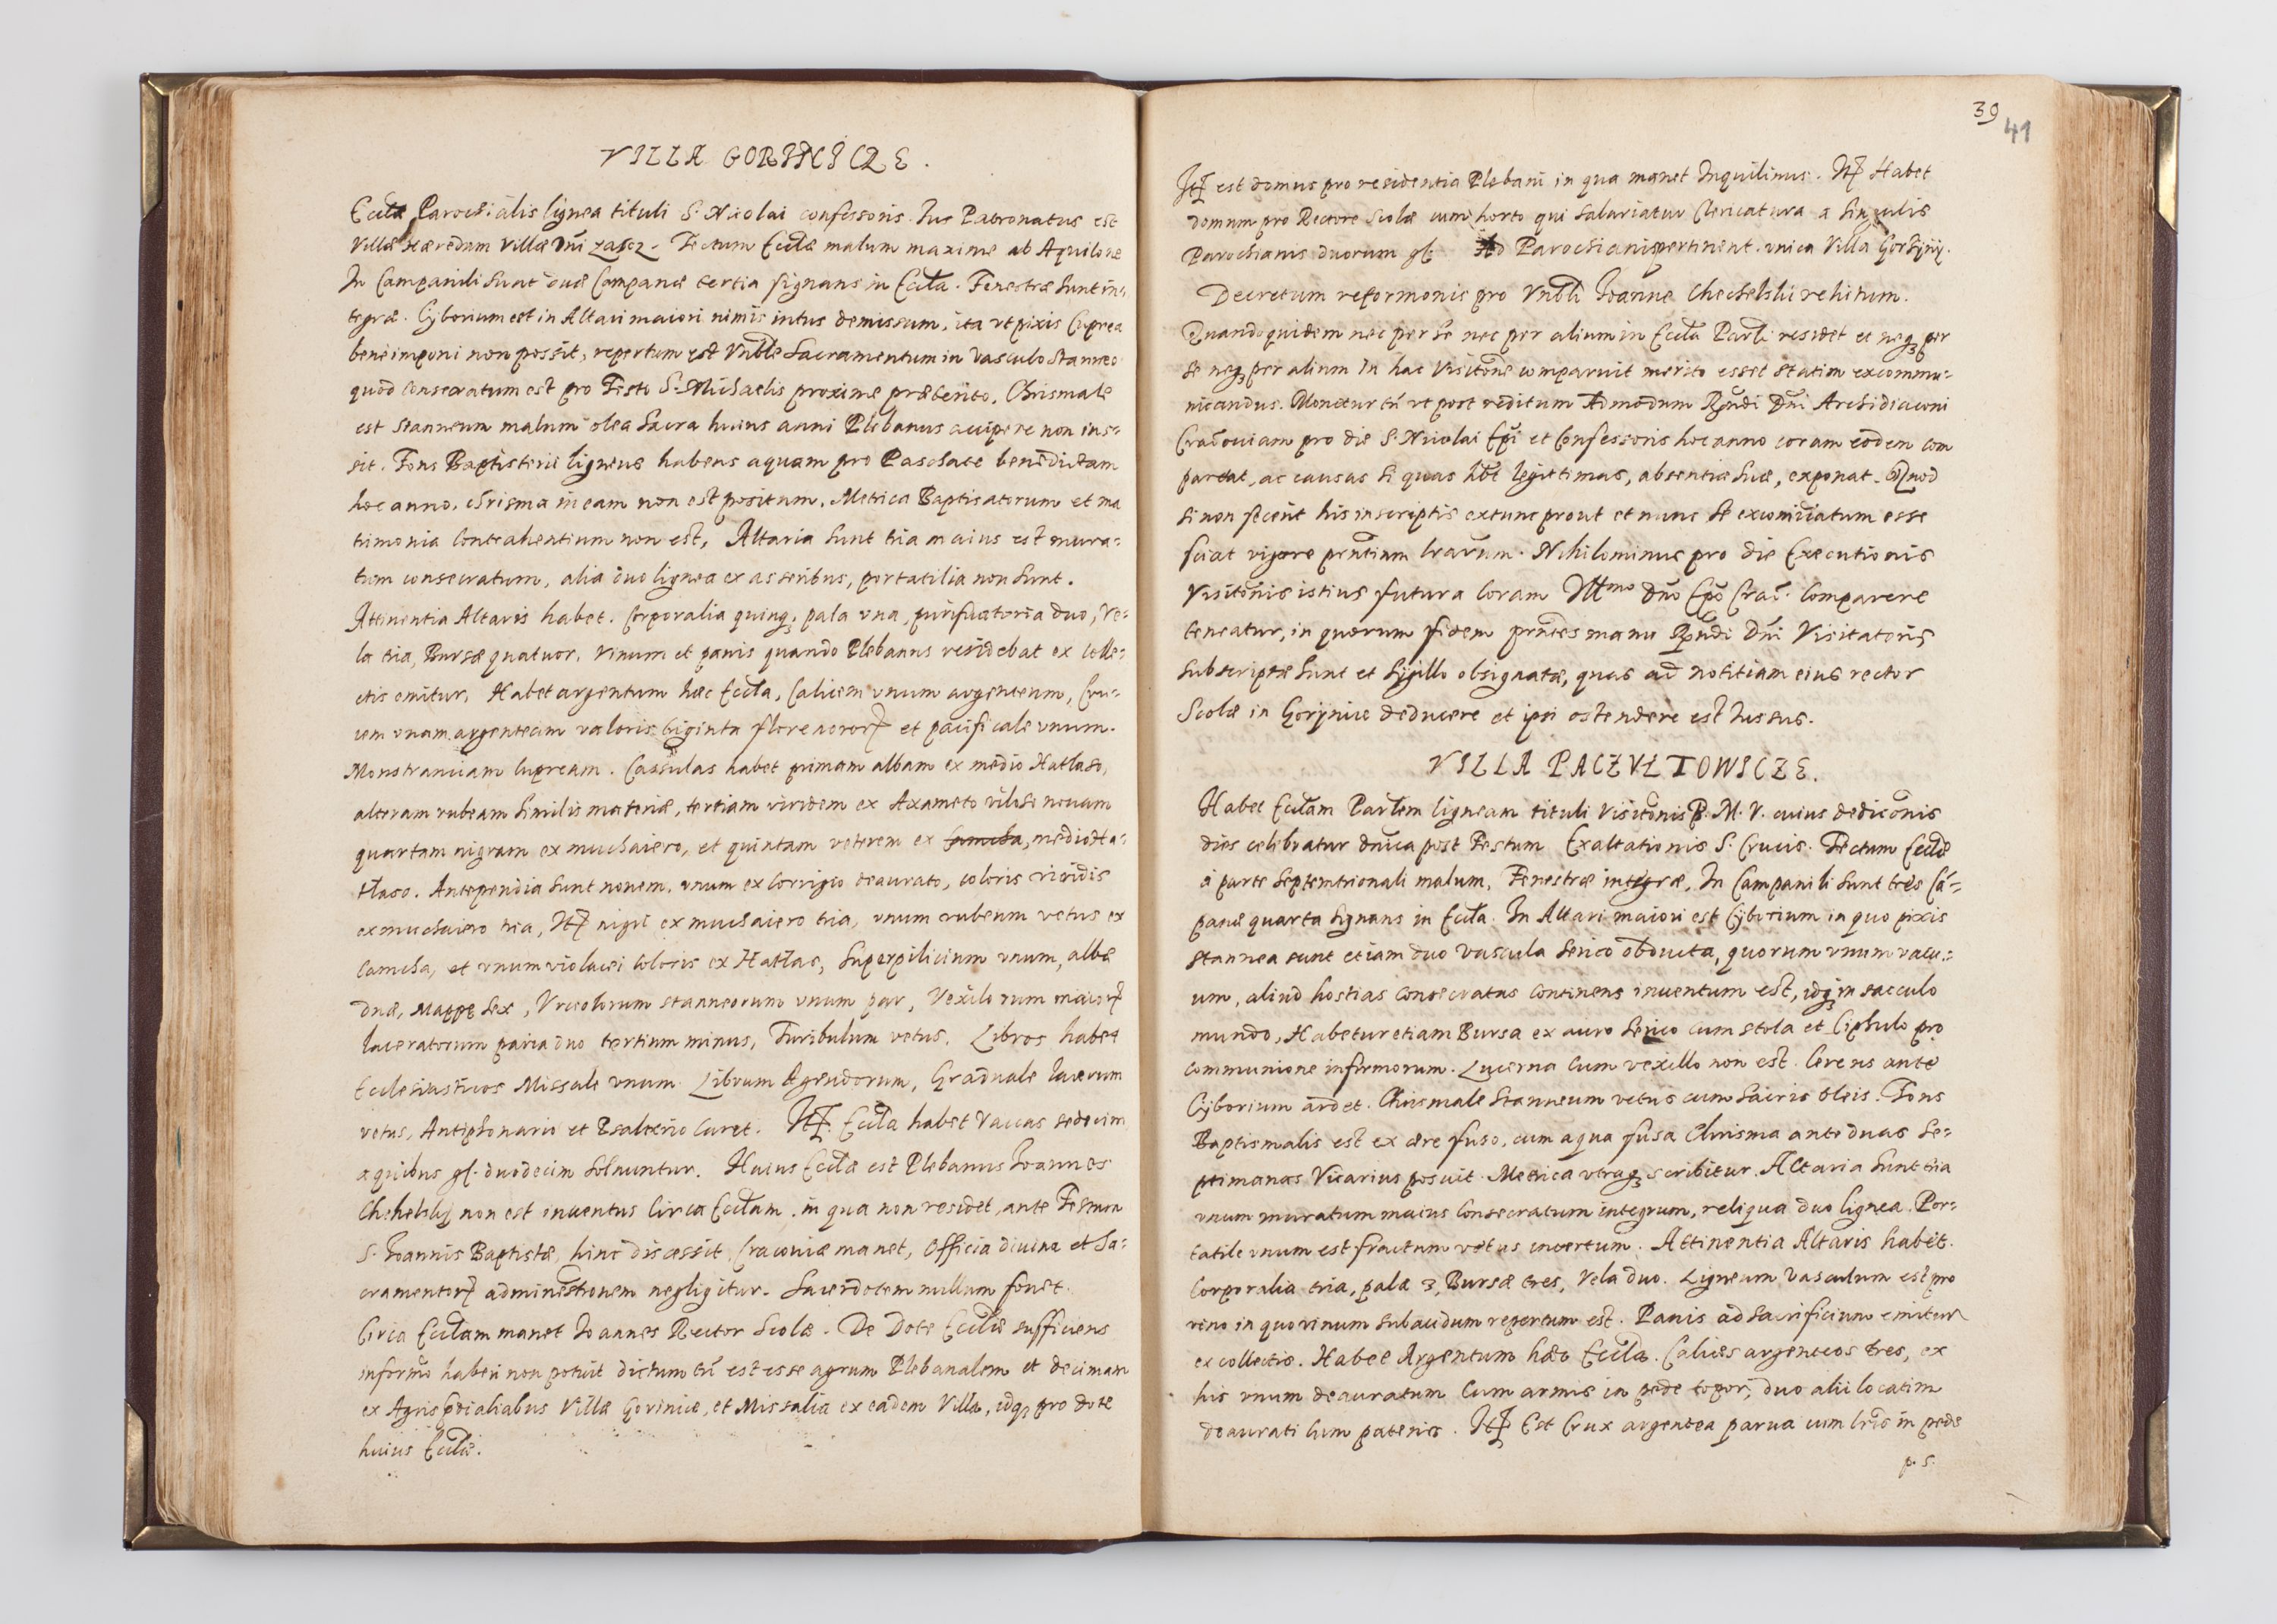 VILLA GORINICZE.
Eccla Parochialis lignea tituli S. Nicolai confessoris. Jus Patronatus est
Villæ hæredum Villæ Dni. Tectum Ecclæ malum maxime ab Aquilone
In Campanili sunt duæ Campanæ tertia signans in Eccla. Fenestræ sunt in-
tegræ. Cyborium est in Altari maiori nimis intus demissum, ita vt pixis Cuprea
bene imponi non possit, repertum est Vnble Sacramentum in vasculo stanneo
quod consecratum est pro Festo S. Michaelis proxime præterito. Chrismale
est stanneum malum olea sacra huius anni Plebanus accipere non ius-
sit. Fons Baptisterii ligneus habens aquam pro Paschate benedictam
hoc anno. chrisma in eam non est positum. Metrica Baptisatorum et ma
trimonia Contrahentium non est, Altaria sunt tria maius est mura-
tum consecratum, alia duo lignea ex asseribus, portatilia non sunt.
Attinentia Altaris habet. Corporalia quinq3, pala vna, purificatoria duo, Ve-
la tria, Bursæ quatuor. Vinum et panis quando Plebanus residebat ex colle-
ctis emitur. Habet argentum hæc Eccla, Calicem vnum argenteum, Cru-
cem vnam argenteam valoris triginta florenoror et pacificale vnum.
Monstranciam Cupream. Cassulas habet primam albam ex medio Hatlaso,
alteram rubeam similis materiæ, tertiam viridem ex Axameto viloso nouam
quartam nigram ex muchaiero, et quintam veterem ex camcha, medio Ha-
tlaso. Antependia sunt nouem, vnum ex Corrigio deaurato, coloris viridis
ex muchaiero tria, Itē nigri ex muchaiero tria, vnum rubeum vetus ex
Camcha, et vnum violacei coloris ex Hatlas, Superpilicium vnum, albæ
duæ, Mappę sex, Vrceolorum stanneorum vnum par, Vexilorum maior
laceratorum paria duo tertium minus, Turibulum vetus. Libros habet
Ecclesiasticos Missale vnum Librum Agendorum, Graduale lacerum
vetus, Antiphonario et Psalterio Caret. Itē. Eccla habet Vaccas sedecim
a quibus gl. duodecim soluuntur. Huius Ecclæ est Plebanus Joannes
Chechelskij non est inuentus Circa Ecclam. in qua non residet, ante Festum
S. Joannis Baptistæ, hinc discessit Cracouiæ manet, Officia diuina et Sa-
cramentor adminestronem negligitur. Sacerdotem nullum fouet.
Circa Ecclam manet Joannes Rector Scolæ. De Dote Ecclæ sufficiens
informo haberi non potuit dictum tn est esse agrum Plebanalem et decimam
ex Agris pdialiabus Villæ Gorinice, et Missalia ex eadem Villa, idq3 pro dote
huius Ecclæ.
39
41
Itē est domus pro residentia Plebani in qua manet Inquilinus. Itē Habet
domum pro Rectore Scolæ cum horto qui salariatur Clericatura a singulis
Parochianis duorum gl. Ad Parochianis pertinent. vnica Villa
Decretum reformonis pro Vnbli Joanne Chechelskii relictum.
Quandoquidem nec per se nec per alium in Eccla Parli residet et neq3 per
se neq3 per alium In hac Visitone comparuit merito esset statim excommu-
nicandus. Monetur tn vt post reditum Admodum Rndi Dni Archidiaconi
Cracouiam pro die S. Nicolai Epi et Confessoris hoc anno coram eodem com
pareat, ac causas si quas hbt legittimas, absentiæ suæ, exponat. Quod
si non fecerit his inscriptis extunc prout et nunc se excomicatum esse
sciat vigore prntium lrarum. Nihilominus pro die Executionis
Visitonis istius futura Coram Illmo Dno Epo Crac. Comparere
teneatur, in quorum fidem prntes manu Rndi Dni Visitatoris
subscriptæ sunt et sigillo obsignatæ, quas ad notitiam eius rector
Scolæ in Gorynice deducere et ipsi ostendere est Iussus.
VILLA PACZVLTOWICZE.
Habet Ecclam Parlem ligneam tituli Visitonis B. M. V. cuius dediconis
dies celebratur dnica post Festum Exaltationis S. Crucis. Tectum Ecclæ
a parte septemtrionali malum, Fenestræ integræ, In Campanili sunt tres Cā-
panæ quarta signans in Eccla. In Altari maiori est Cyborium in quo pixis
stannea sunt etiam duo vascula serico obducta, quorum vnum vacu-
um, aliud hostias consecratas continens inuentum est, idq3 in sacculo
mundo, Habetur etiam Bursa ex auro serico cum stola et Ciphulo pro
communione infirmorum. Lucerna Cum vexillo non est. Cereus ante
Cyborium ardet. Chrismale stanneum vetus cum sacris oleis. Fons
Baptismalis est ex ære fuso, cum aqua fusa Chrisma ante duas se-
ptimanas Vicarius posuit. Metrica vtraq3 scribitur. Altaria sunt tria
vnum muratum maius consecratum integrum, reliqua duo lignea. Por-
tatile vnum est fractum vetus incertum. Attinentia Altaris habet.
Corporalia tria, palæ 3, Bursæ tres, Vela duo. Ligneum vasculum est pro
vino in quo vinum subacidum repertum est. Panis ad sacrificium emitur
ex collectis. Habet Argentum hæc Eccla. Calices argenteos tres, ex
his vnum deauratum Cum armis in pede topor, duo alii locatim
deaurati cum patenis. Itē Est Crux argentea parua cum lris in pede
p. S.